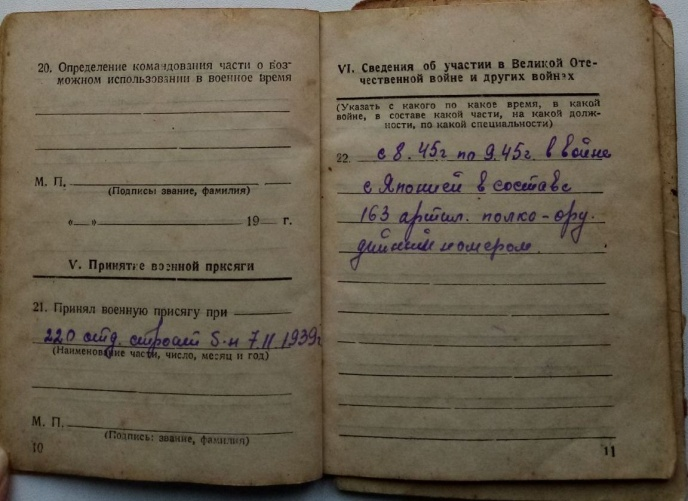 20. Определение командования части о воз-
можном использовании в военное время
М. П.
(Подпись: звание, фамилия)
„ — “ 19 — г.
V. Принятие военной присяги
21. Принял военную присягу при
220 отд. строит б-н 7.II 1939г
(Наименование части, число, месяц и год)
М. П.
(Подпись: звание, фамилия)
10
VI. Сведения об участии в Великой Оте-
чественной войне и других войнах
(Указать с какого по какое время, в какой
войне, в составе какой части, на какой долж-
ности, по какой специальности)
22. с 8.45г по 9.45г. в войне
с Японией в составе
163 артил. полко - ору.
дийный номером.
11